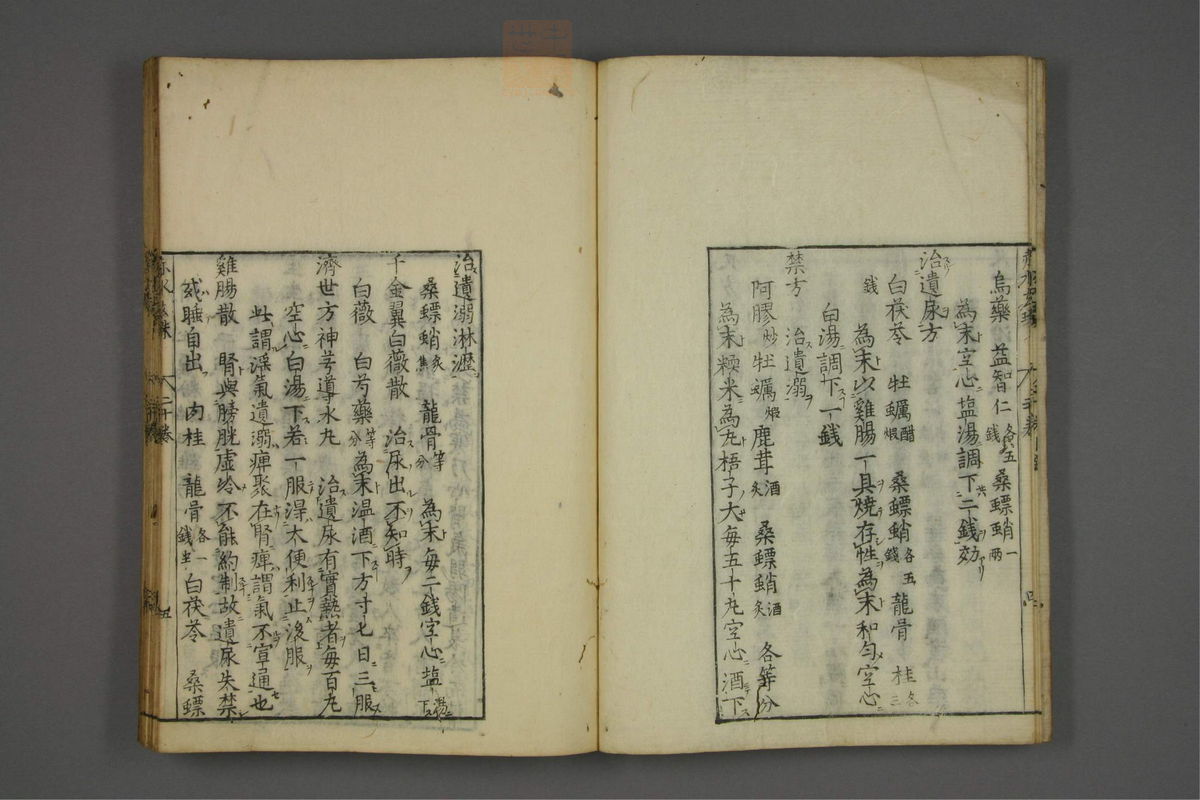 烏藥 益智仁各五錢 桑螵蛸一兩
為末空心塩湯調下二錢効
治遺尿方
白茯苓 牡蠣醋煆 桑螵蛸各五錢 龍骨 桂各三
錢
為末以雞腸一具燒存性為末和勻空心
白湯調下一錢
禁方 治遺溺
阿膠炒 牡蠣煆 鹿茸酒炙 桑螵蛸酒炙 各等分
為末糯米為丸梧子大每五十丸空心酒下
治遺溺淋瀝
桑螵蛸炙焦 龍骨等分 為末每二錢空心塩湯下
千金翼白薇散 治尿出不知時
白薇 白芍藥等分 為末温酒下方寸七日三服
濟世方神芎導水丸 治遺尿有實熱者每百丸
空心白湯下若一服淂木便利止後服
此謂淫氣遺溺痺聚在腎痺謂氣不宣通也
雞腸散 腎與膀胱虛冷不能約制故遺尿失禁
或睡自出 肉桂 龍骨各一錢半 白茯苓 桑螵
五